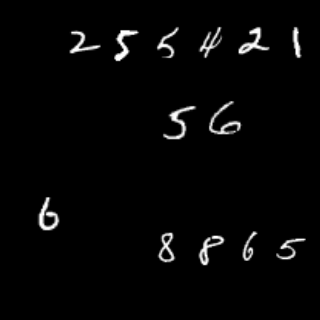 2 5 5 4 2 1
5 6
6
8 8 6 5